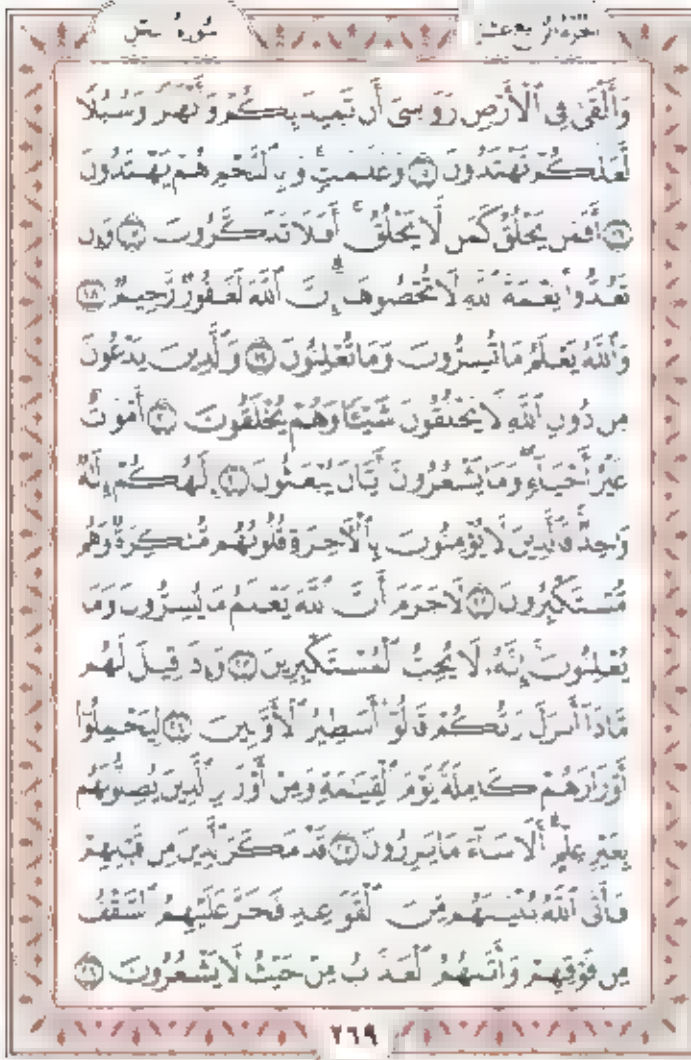 سُورَةُ النَّحْلِ
الجُزْءُ الرَّابِعَ عَشَرَ
وَأَلْقَىٰ فِي ٱلْأَرْضِ رَوَٰسِيَ أَن تَمِيدَ بِكُمْ وَأَنْهَٰرًا وَسُبُلًا
لَّعَلَّكُمْ تَهْتَدُونَ ۝١٥ وَعَلَٰمَٰتٍ ۚ وَبِٱلنَّجْمِ هُمْ يَهْتَدُونَ
۝١٦ أَفَمَن يَخْلُقُ كَمَن لَّا يَخْلُقُ ۗ أَفَلَا تَذَكَّرُونَ ۝١٧ وَإِن
تَعُدُّوا۟ نِعْمَةَ ٱللَّهِ لَا تُحْصُوهَآ ۗ إِنَّ ٱللَّهَ لَغَفُورٌ رَّحِيمٌ ۝١٨
وَٱللَّهُ يَعْلَمُ مَا تُسِرُّونَ وَمَا تُعْلِنُونَ ۝١٩ وَٱلَّذِينَ يَدْعُونَ
مِن دُونِ ٱللَّهِ لَا يَخْلُقُونَ شَيْـًٔا وَهُمْ يُخْلَقُونَ ۝٢٠ أَمْوَٰتٌ
غَيْرُ أَحْيَآءٍ ۖ وَمَا يَشْعُرُونَ أَيَّانَ يُبْعَثُونَ ۝٢١ إِلَٰهُكُمْ إِلَٰهٌ
وَٰحِدٌ ۚ فَٱلَّذِينَ لَا يُؤْمِنُونَ بِٱلْـَٔاخِرَةِ قُلُوبُهُم مُّنكِرَةٌ وَهُم
مُّسْتَكْبِرُونَ ۝٢٢ لَا جَرَمَ أَنَّ ٱللَّهَ يَعْلَمُ مَا يُسِرُّونَ وَمَا
يُعْلِنُونَ ۚ إِنَّهُۥ لَا يُحِبُّ ٱلْمُسْتَكْبِرِينَ ۝٢٣ وَإِذَا قِيلَ لَهُم
مَّاذَآ أَنزَلَ رَبُّكُمْ ۙ قَالُوٓا۟ أَسَٰطِيرُ ٱلْأَوَّلِينَ ۝٢٤ لِيَحْمِلُوٓا۟
أَوْزَارَهُمْ كَامِلَةً يَوْمَ ٱلْقِيَٰمَةِ ۙ وَمِنْ أَوْزَارِ ٱلَّذِينَ يُضِلُّونَهُم
بِغَيْرِ عِلْمٍ ۗ أَلَا سَآءَ مَا يَزِرُونَ ۝٢٥ قَدْ مَكَرَ ٱلَّذِينَ مِن قَبْلِهِمْ
فَأَتَى ٱللَّهُ بُنْيَٰنَهُم مِّنَ ٱلْقَوَاعِدِ فَخَرَّ عَلَيْهِمُ ٱلسَّقْفُ
مِن فَوْقِهِمْ وَأَتَىٰهُمُ ٱلْعَذَابُ مِنْ حَيْثُ لَا يَشْعُرُونَ ۝٢٦
٢٦٩